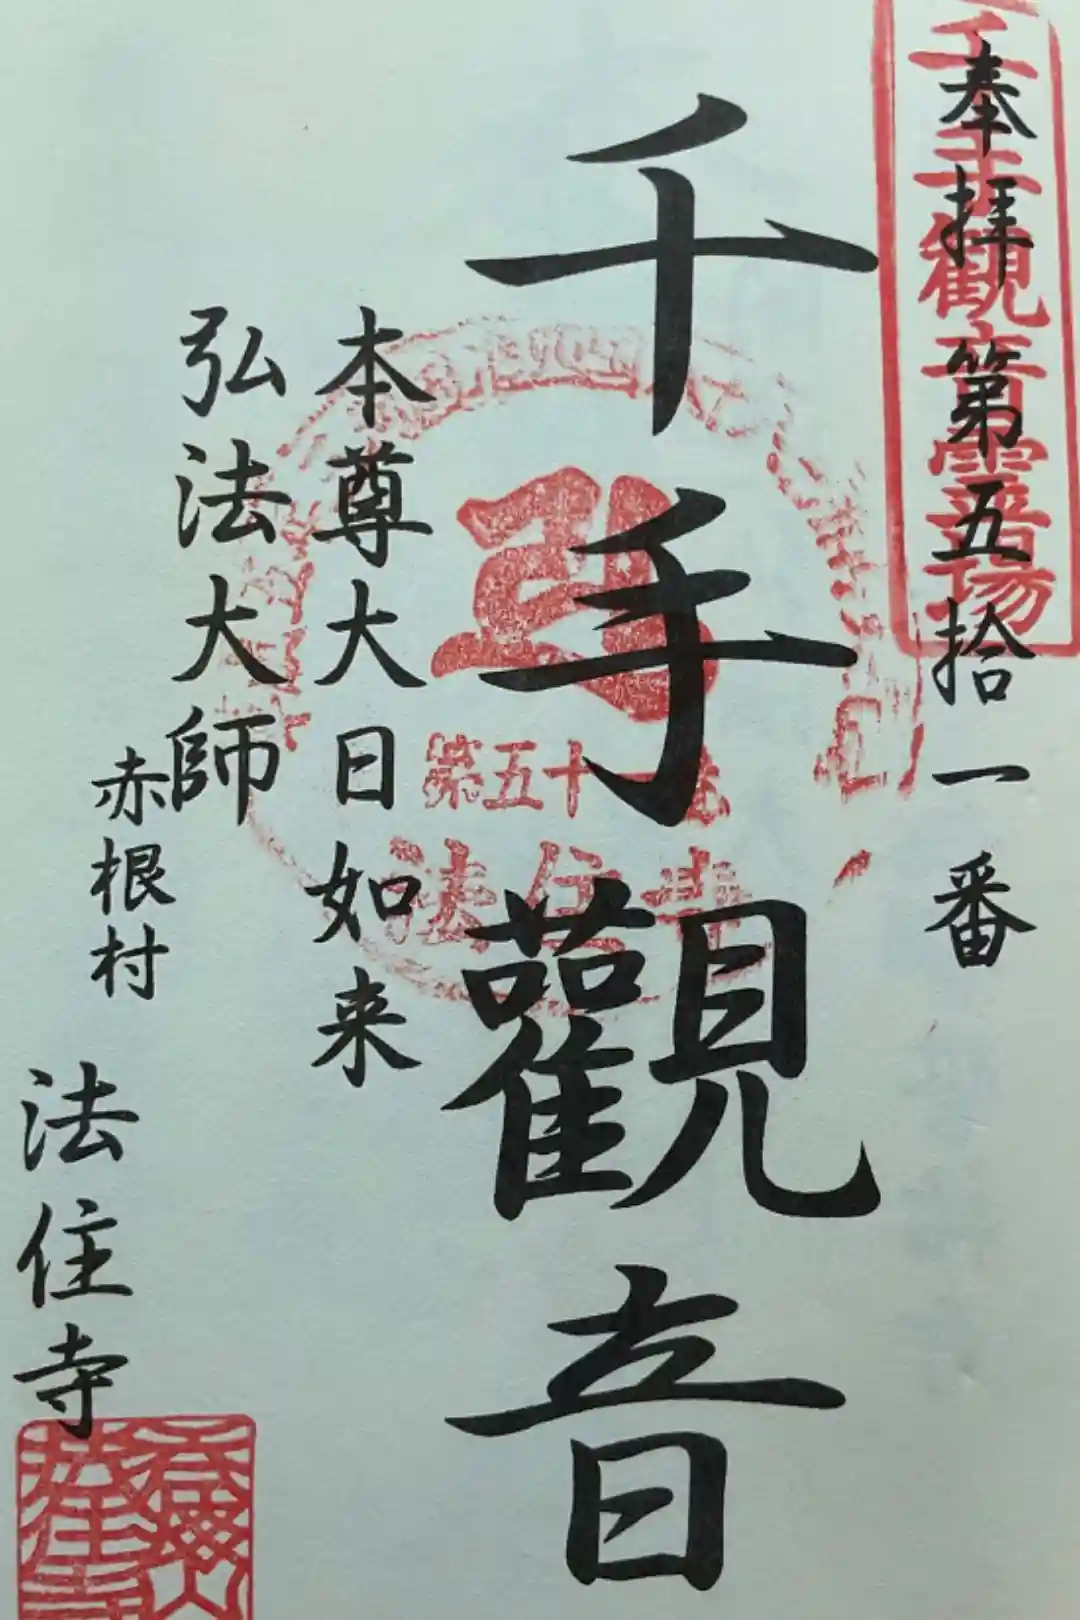 奉拝第五拾一番
千手觀音霊場
千手觀音
第五十一番
法住寺
本尊大日如来
弘法大師
赤根村
法住寺